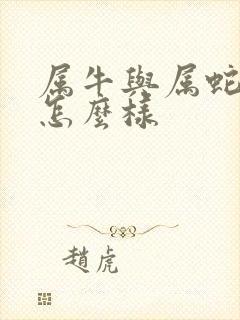 属牛與属蛇
怎麼樣
趙虎